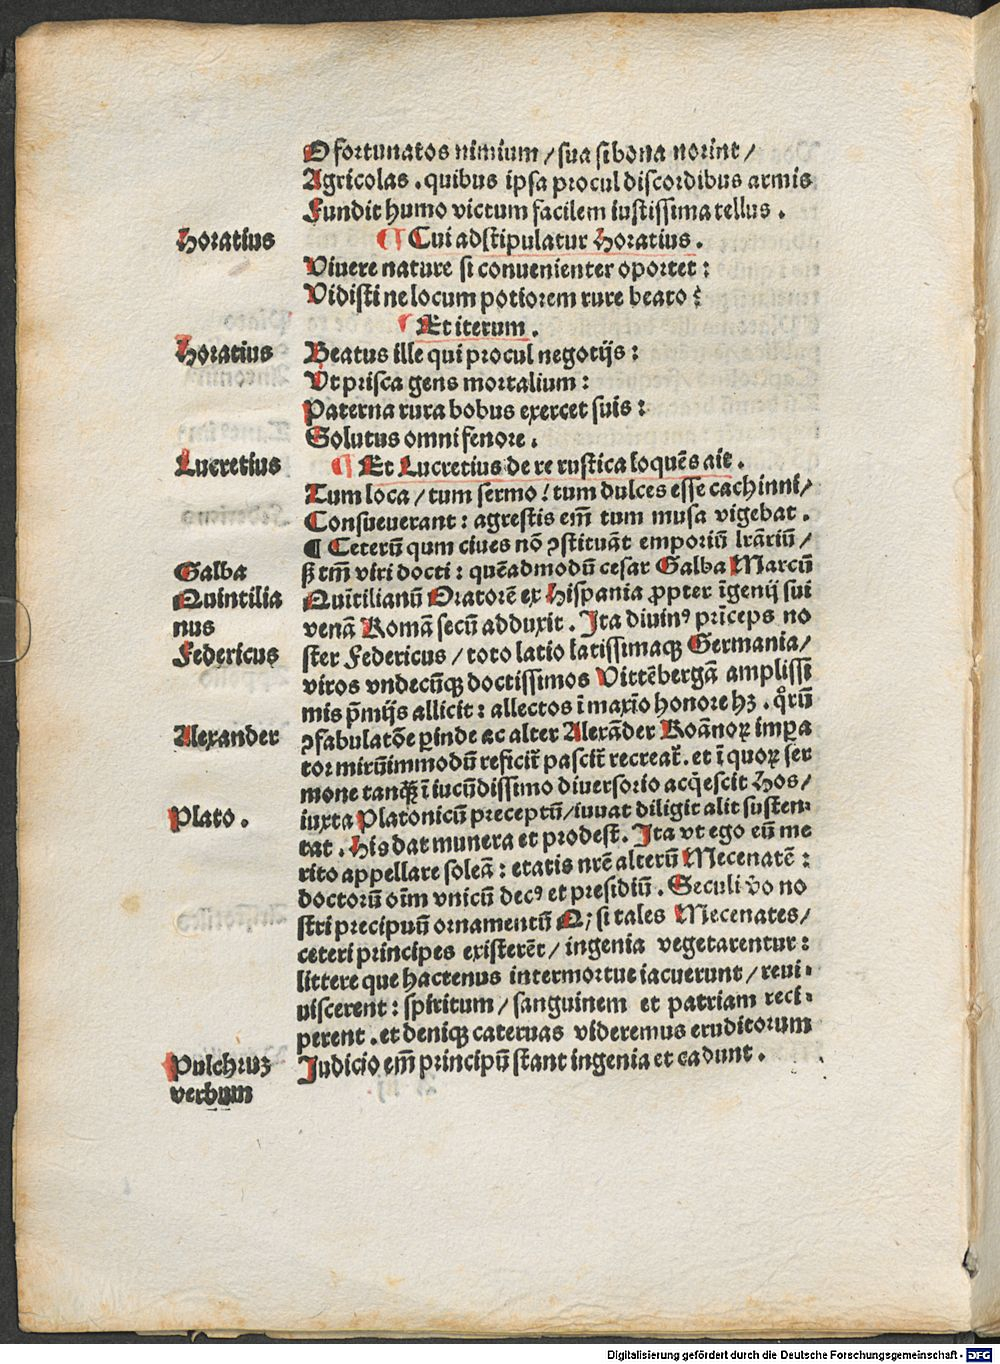 O fortunatos nimium / sua si bona norint /
Agricolas . quibus ipsa procul discordibus armis
Fundit humo victum facilem iustissima tellus .
Horatius
¶ Cui adstipulatur Horatius .
Viuere nature si conuenienter oportet :
Vidisti ne locum potiorem rure beato ?
¶ Et iterum .
Horatius
Beatus ille qui procul negotijs :
Vt prisca gens mortalium :
Paterna rura bobus exercet suis :
Solutus omni fenore .
Lucretius
¶ Et Lucretius de re rustica loquēs ait .
Tum loca / tum sermo / tum dulces esse cachinni /
Consueuerant : agrestis em̄ tum musa vigebat .
¶ Ceterū qum ciues nō ꝯstituāt emporiū lrāriū /
Galba
sꝫ tm̄ viri docti : quēadmodū cesar Galba Marcū
Quintilia
Quītilianū Oratorē ex Hispania ꝓpter īgenij sui
nus
venā Romā secū adduxit . Ita diuinꝰ prīceps no
Federicus
ster Federicus / toto latio latissimaqꝫ Germania /
viros vndecūqꝫ doctissimos Vittēbergā amplissi
mis p̄mijs allicit : allectos ī maxīo honore hꝫ . qͦrū
Alexander
ꝯfabulatōe ꝑinde ac alter Alexāder Roānoꝝ impa
tor mirūimmodū reficit̄ pascit̄ recreat̄ . et ī quoꝝ ser
mone tanqꝫ ī iucūdissimo diuersorio acqͥescit Hos /
Plato .
iuxta Platonicū preceptū / iuuat diligit alit susten⸗
tat . His dat munera et prodest . Ita vt ego eū me
rito appellare soleā : etatis nrē alterū Mecenatē :
doctorū oīm vnicū decꝰ et presidiū . Seculi vͦo no
stri precipuū ornamentū Qꝫ si tales Mecenates /
ceteri principes existerēt / ingenia vegetarentur :
littere que hactenus intermortue iacuerunt / reui⸗
uiscerent : spiritum / sanguinem et patriam reci⸗
perent . et deniqꝫ cateruas videremus eruditorum
Pulchruꝫ
Iudicio em̄ principū stant ingenia et cadunt .
verbum
Digitalisierung gefördert durch die Deutsche Forschungsgemeinschaft - DFG